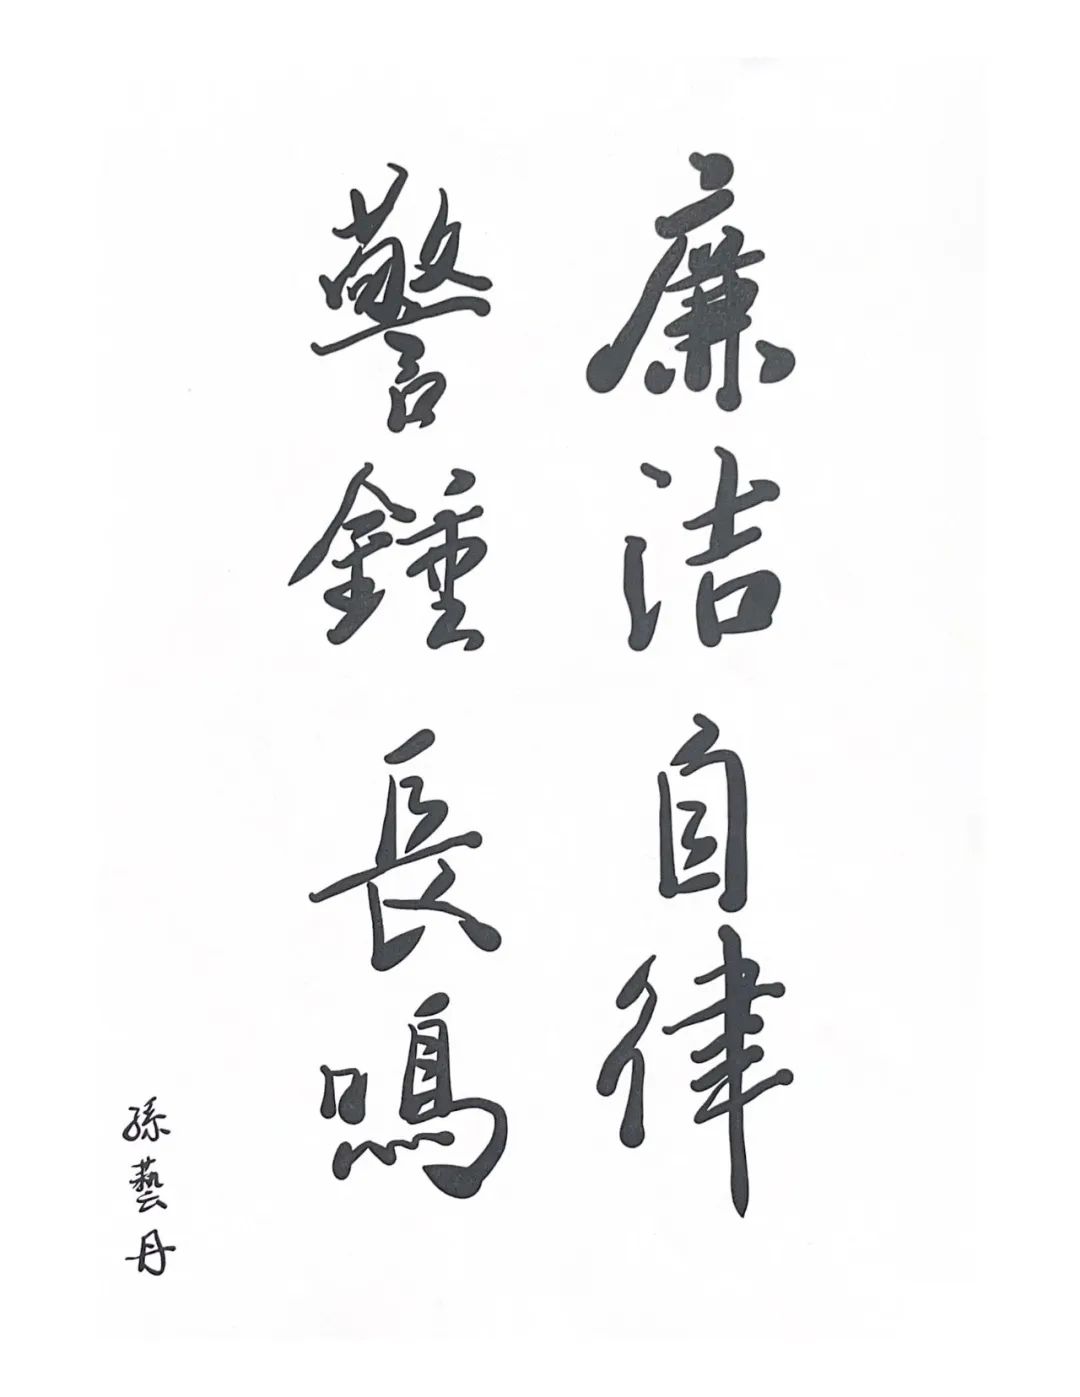 廉洁自律
警鍾長鳴
孫藝丹